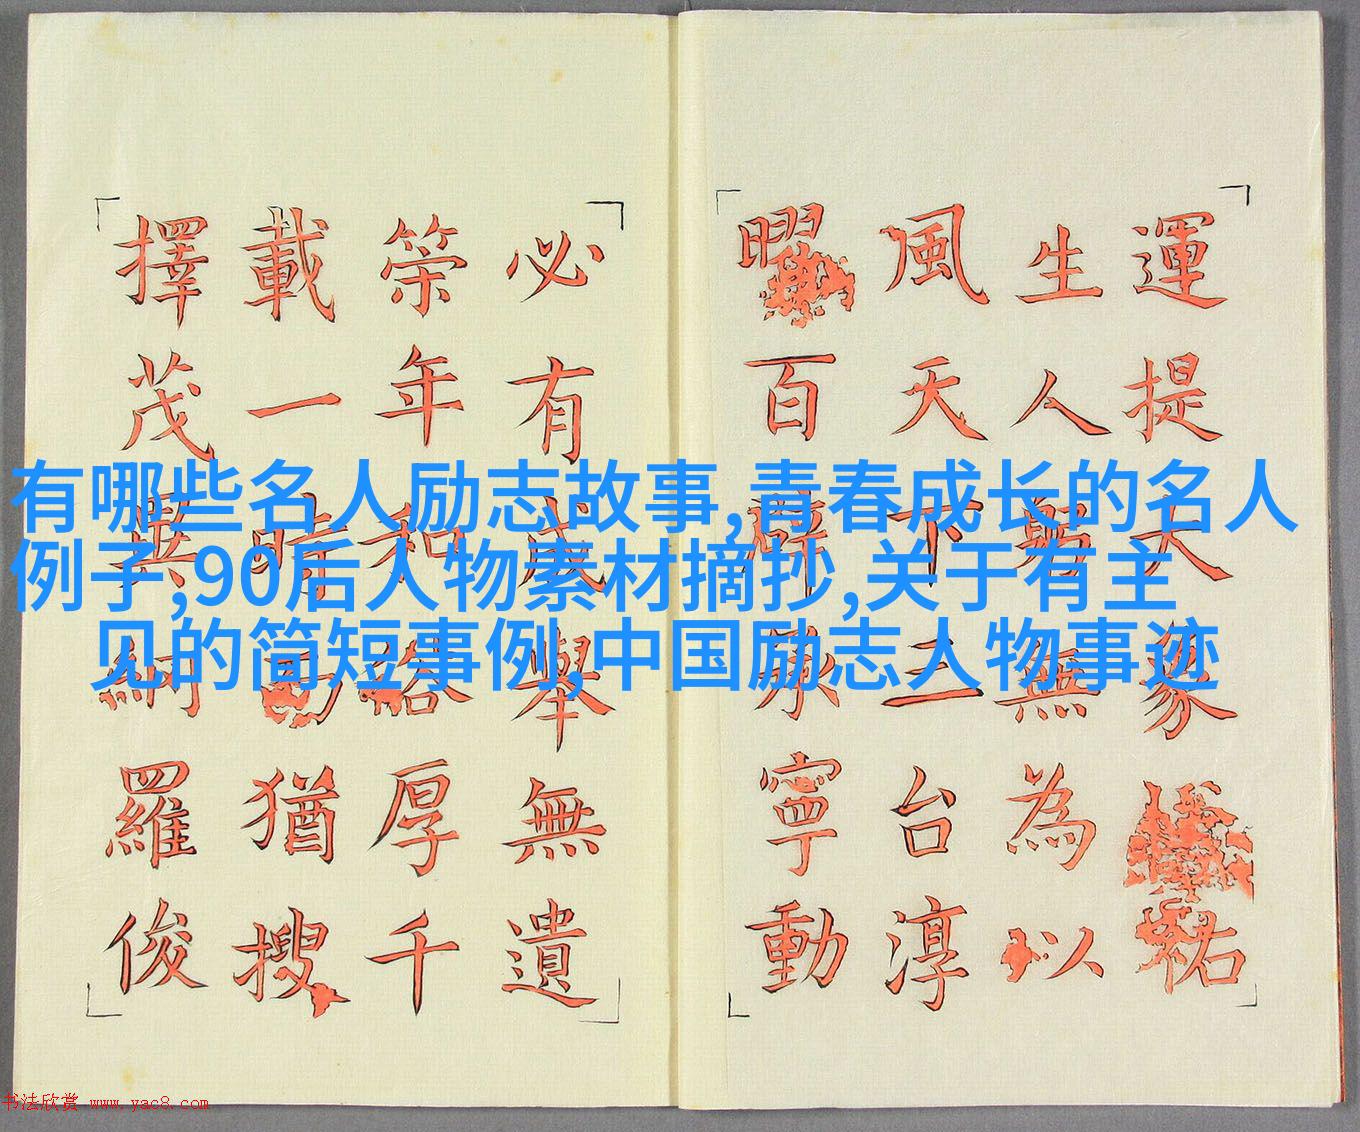 有哪些名人励志故事,青春成长的名人
例子,90后人物素材摘抄,关于有主
见的简短事例,中国励志人物事迹
運提大祐
生人無為以
風天下三台淳
曜百辟承寧動
必有成舉無遺
年和厚千
載一時猶搜
擇茂異網羅俊
书法欣赏 www.yac8.com